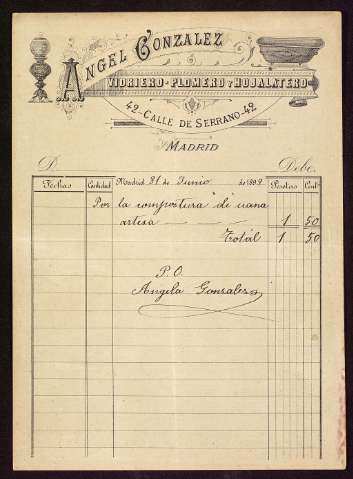 ANGEL GONZALEZ
VIDRIERO-PLOMERO Y HOJALATERO
42-CALLE DE SERRANO-42
MADRID
D. Debe.
Fechas Cantidad Madrid 21 de Junio de 1899 Pesetas Cent.
Por la compostura de una
artesa 1 50
Total 1 50
P. O.
Angela Gonzalez